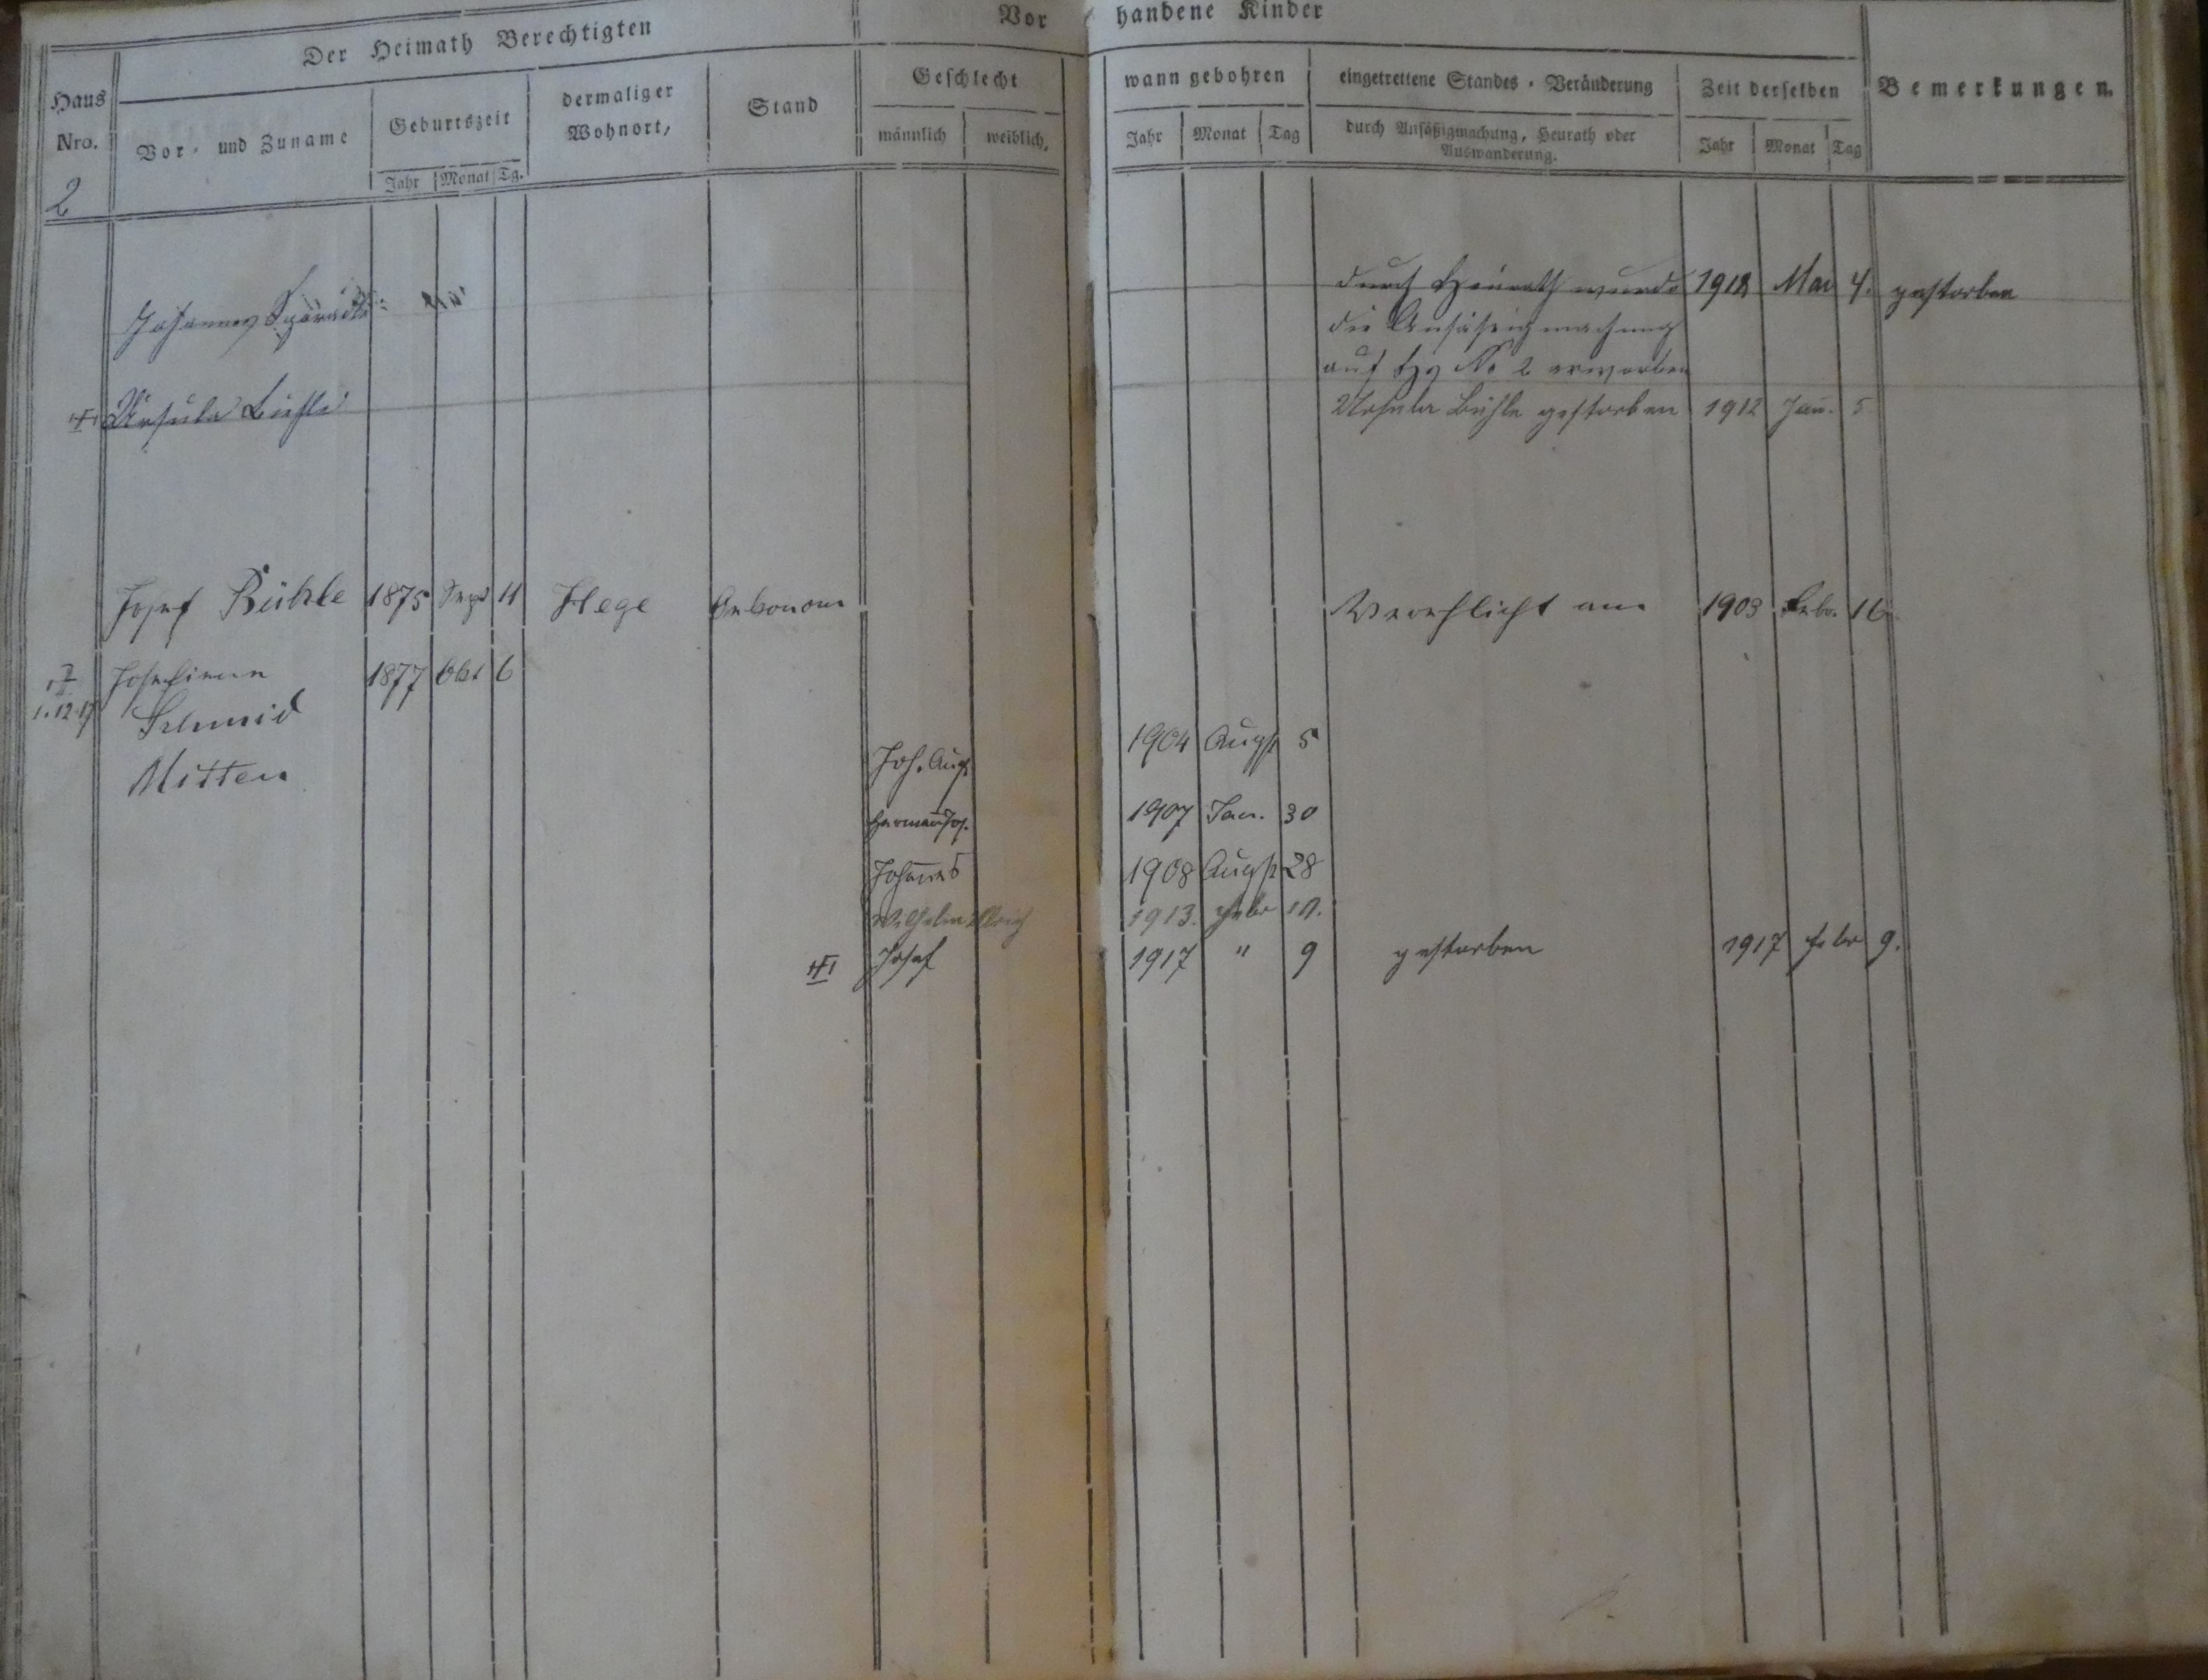 Der Heimath Berechtigten
Vorhandene Kinder
Haus Nro.
Vor- und Zuname
Geburtszeit
Jahr Monat Tg.
dermaliger Wohnort,
Stand
Geschlecht
männlich weiblich,
wann gebohren
Jahr Monat Tag
eingetrettene Standes-Veränderung
durch Ansäßigmachung, Heurath oder
Auswanderung.
Zeit derselben
Jahr Monat Tag
Bemerkungen.
2
Johannes
durch Heurath wurde 1912 Mai 4. gestorben
die Ansäßigmachung
auf Hs No 2 erworben
Ursula Biehle
Ursula Bühle gestorben 1912 Jan. 5
Josef Bühle 1875 Sept 11 Hege Oekonom Verehlicht am 1903 Febr. 16.
Josefine 1877 Okt 6
1.12.19
Schmid
Mitten
Joh. Aug. 1904 Augst 5
Herman Jos. 1907 Jan. 30
Johannes 1908 Augst 28
Wilhelm Ulrich 1913. Febr
Josef 1917 " 9 gestorben 1917 febr 9.